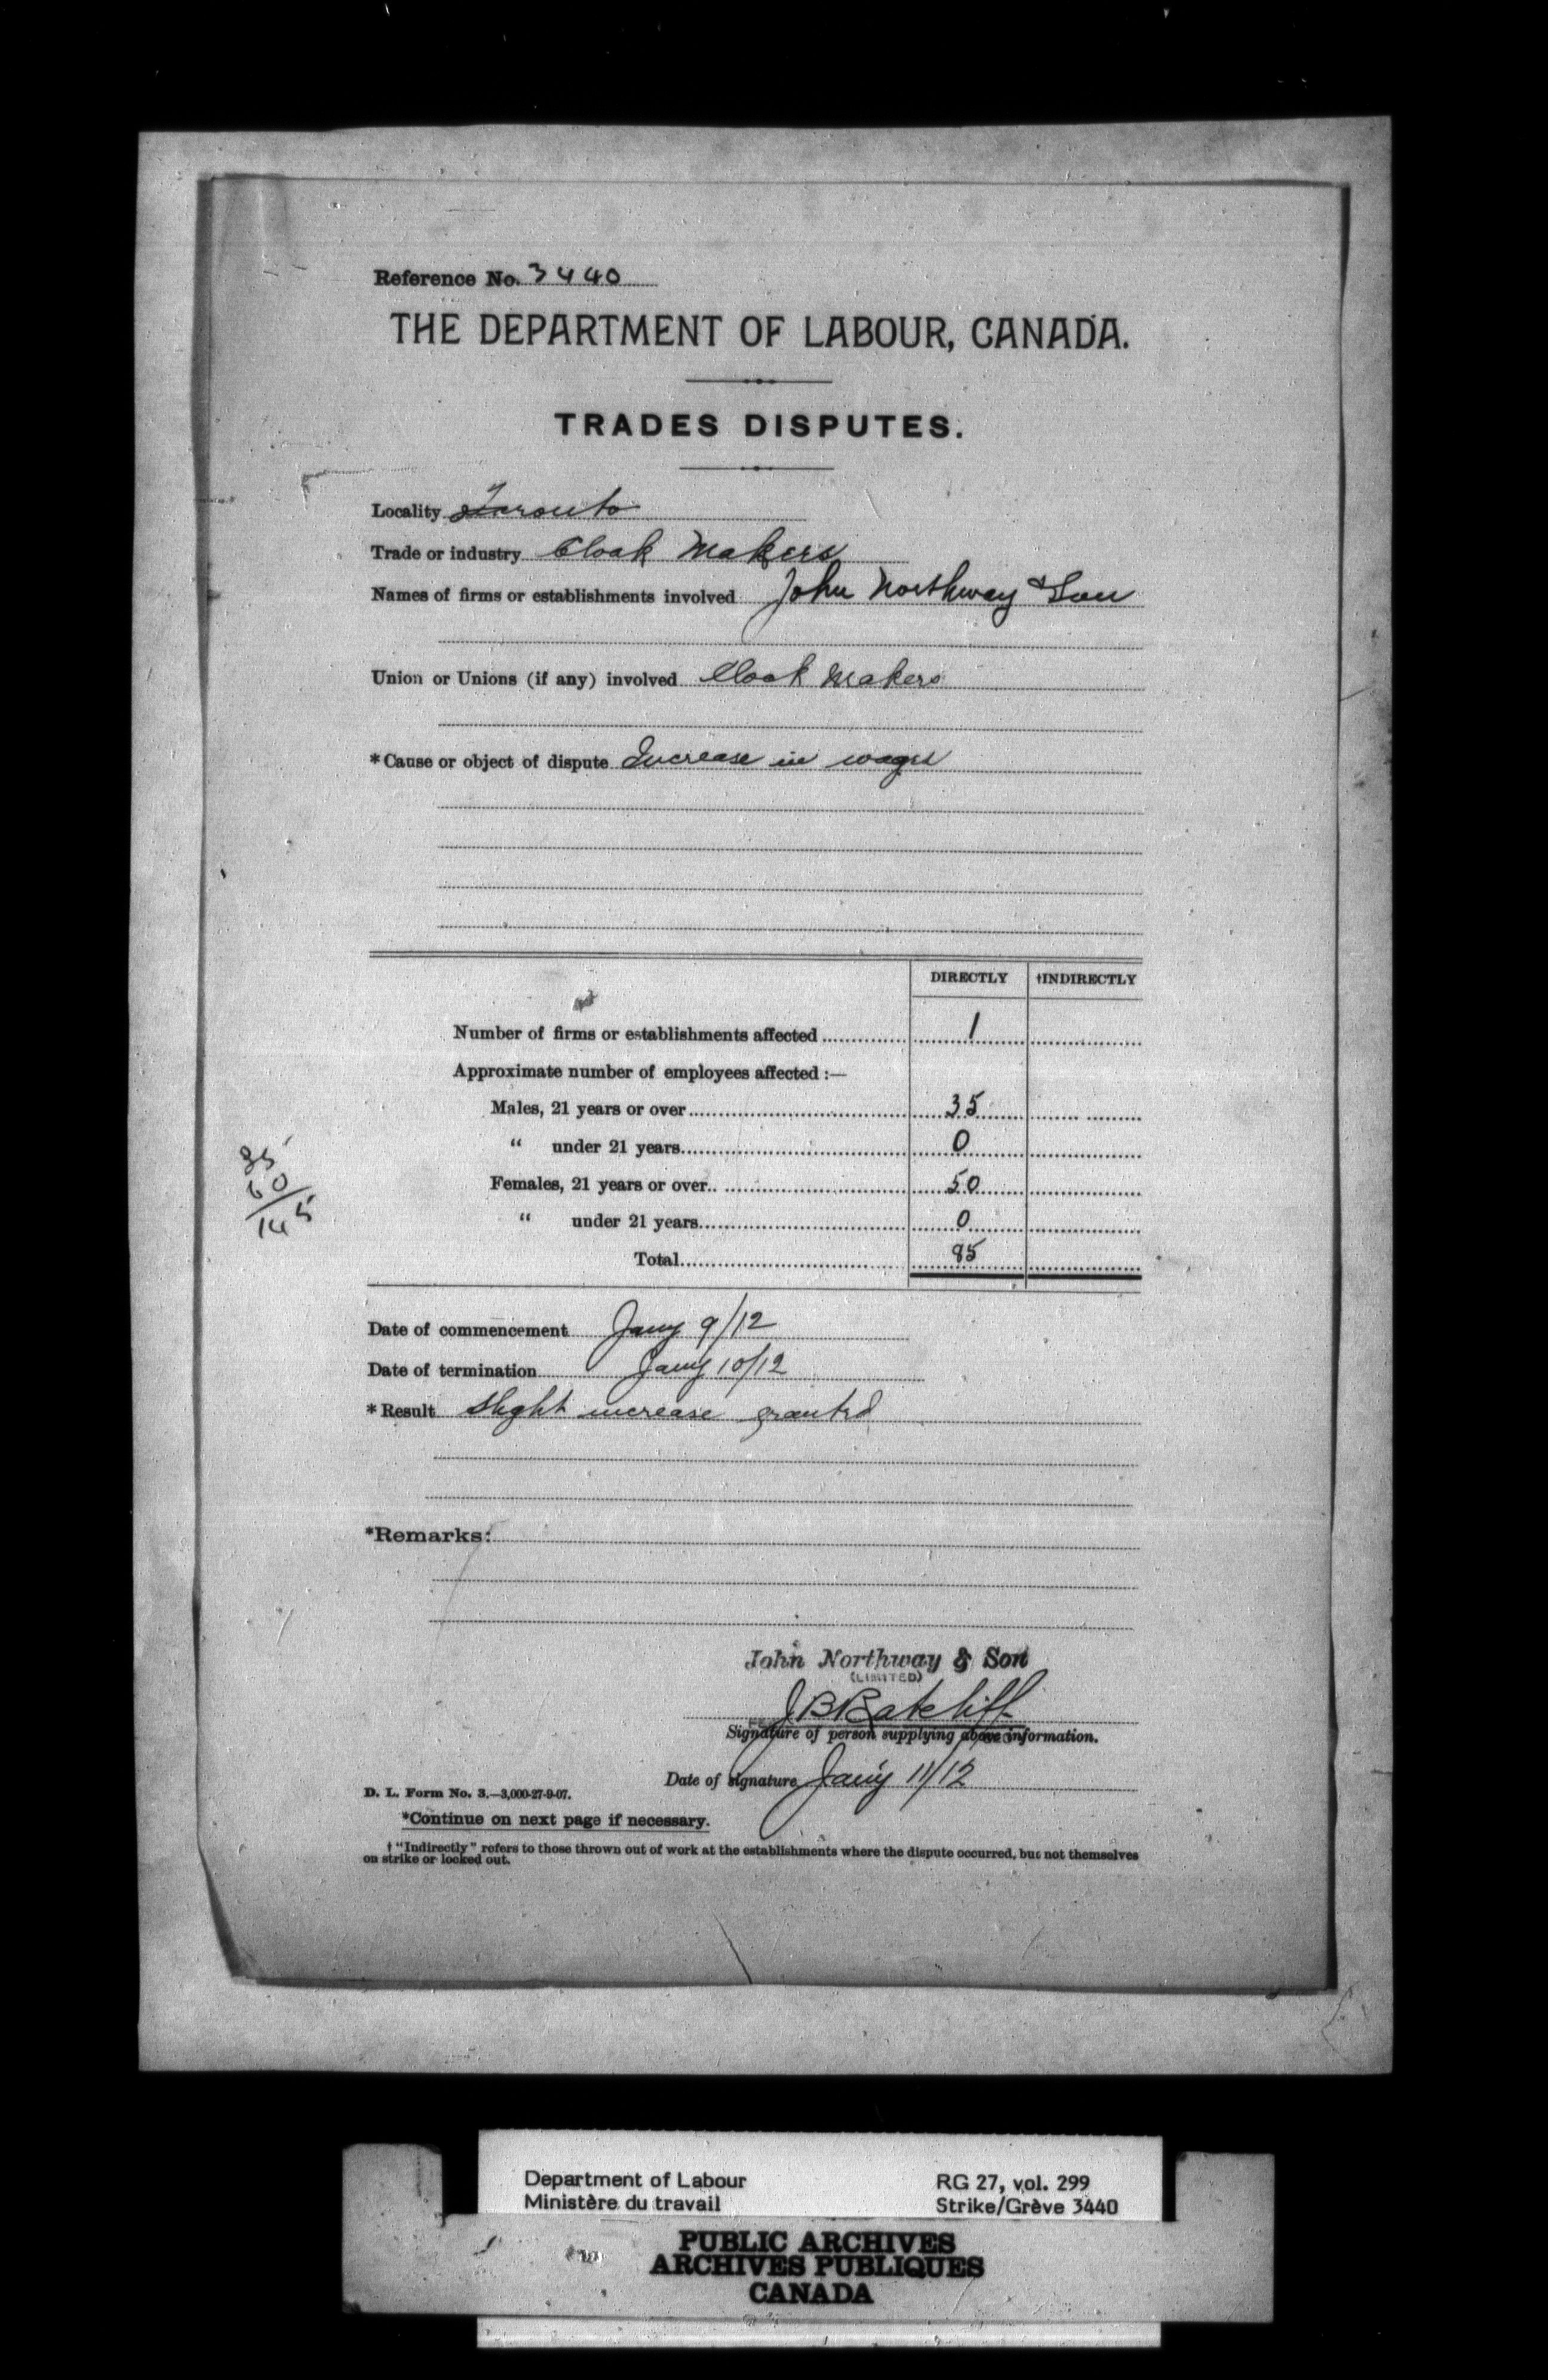 Reference No. 3440
THE DEPARTMENT OF LABOUR, CANADA.
TRADES DISPUTES.
Locality Toronto
Trade or industry Cloak Makers
Names of firms or establishments involved John Northway & Son
Union or Unions (if any) involved Cloak Makers
*Cause or object of dispute Increase in wages
DIRECTLY †INDIRECTLY
Number of firms or establishments affected 1
Approximate number of employees affected :—
Males, 21 years or over 35
" under 21 years 0
Females, 21 years or over 50
" under 21 years 0
Total 85
60
145
Date of commencement Jany 9/12
Date of termination Jany 10/12
*Result Slight increase granted
*Remarks:
John Northway & Son
(LIMITED)
J B Ratcliff
Signature of person supplying above information.
Date of signature Jany 11/12
D. L. Form No. 3.—3,000-27-9-07.
*Continue on next page if necessary.
† "Indirectly" refers to those thrown out of work at the establishments where the dispute occurred, but not themselves
on strike or locked out.
Department of Labour RG 27, vol. 299
Ministère du travail Strike/Grève 3440
PUBLIC ARCHIVES
ARCHIVES PUBLIQUES
CANADA